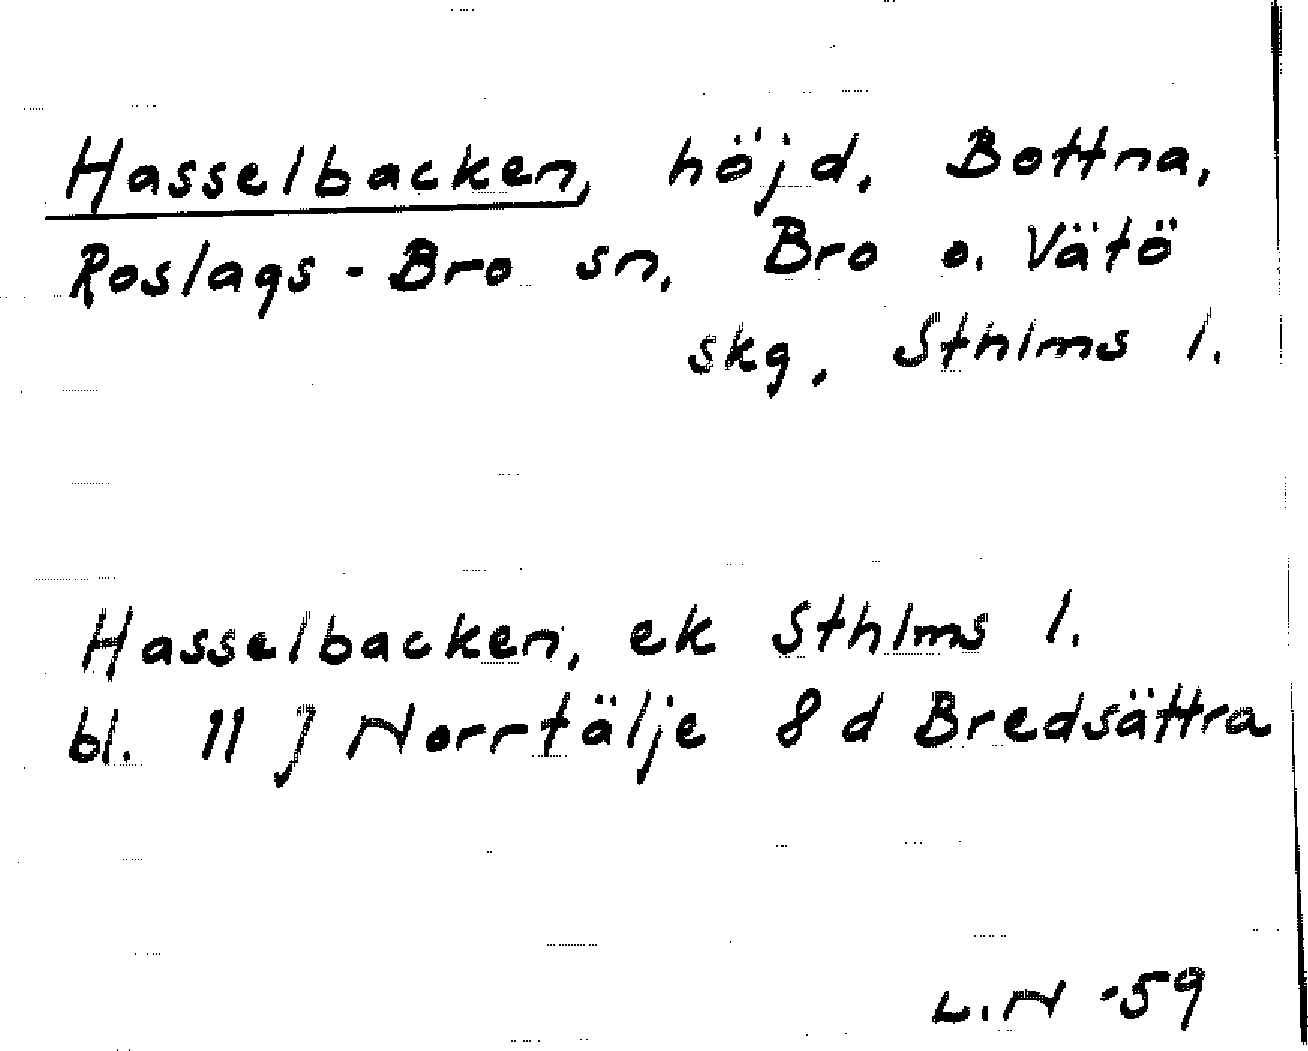 Hasselbacken, höjd, Bottna,
Roslags-Bro sn, Bro o. Vätö
skg, Sthlms l.
Hasselbacken, ek Sthlms l.
bl. 11 J Norrtälje 8 d Bredsättra
L.N -59